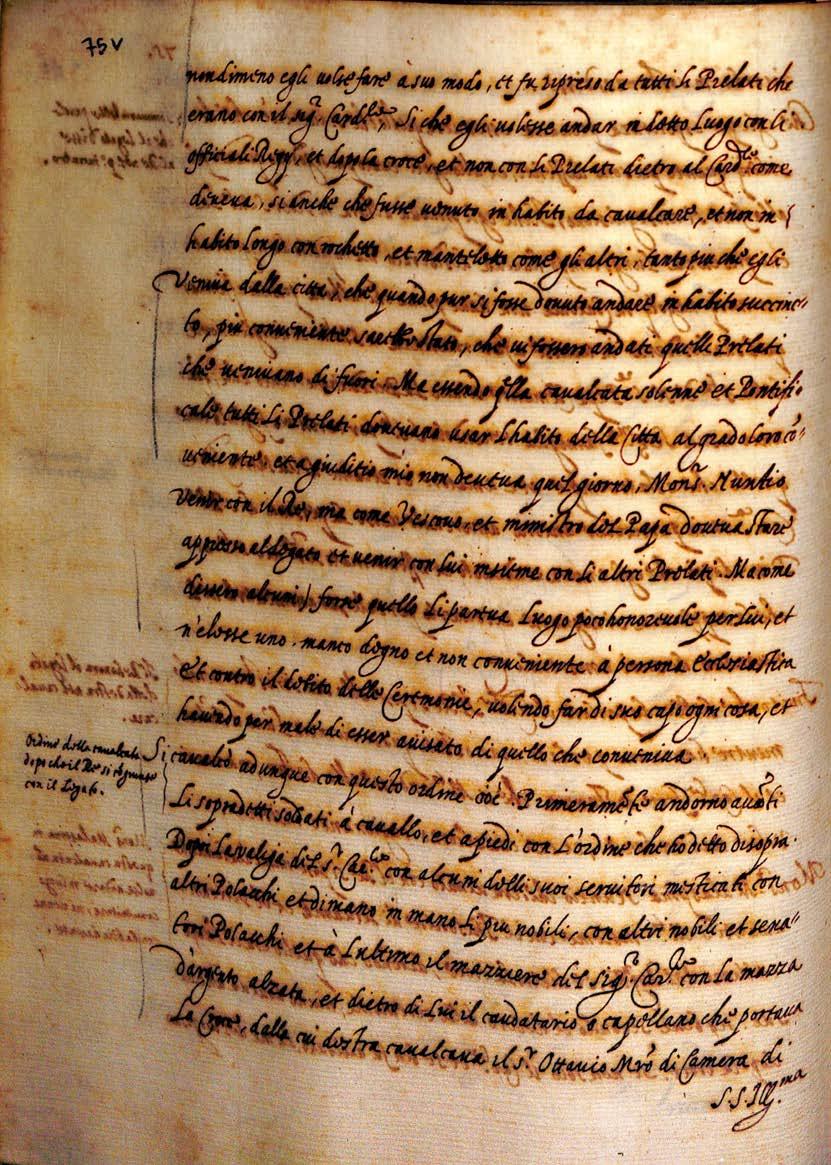 75v
nondimeno egli volse fare à suo modo, et fu ripreso da tutti li Prelati che
erano con il sig.r Card.le, Si che egli volesse andar in detto Luogo con li
officiali Regij, et dopo la croce, et non con li Prelati dietro al Card.le come
doveva, si anche che fusse venuto in habito da cavalcare, et non in
habito longo con rochetto, et manteletto come gli altri, tanto piu che egli
Veniva dalla citta, che quando pur si fosse dovuto andare in habito succinc-
to, piu conveniente sarebbe stato, che vi fossero andati quelli Prelati
che venivano di fuori. Ma essendo q̃lla cavalcata solenne et Pontifi-
cale tutti li Prelati dovevano usar l'habito della Citta al grado loro cõ-
veniente, et a giuditio mio non deveva quel giorno, Mons.r Nuntio
Venir con il Re, ma come Vescovo, et ministro del Papa doveva stare
appresso al legato et venir con lui insieme con li altri Prelati. Ma come
dissero alcuni) forse quello li pareva Luogo poco honorevole per lui, et
n'elesse uno manco degno et non conveniente à persona Ecclesiastica
Et contro il debito delle Ceremonie, volendo far di suo capo ogni cosa, et
havendo per male di esser avisato di quello che conveniva
Ordine della cavalcata
dopo che il Re si cõgiunse
con il Legato.
Si cavalcò adunque con questo ordine cioè. Primieramẽte andorno avãti
Li sopradetti soldati à cavallo, et a piedi con L'ordine che ho detto di sopra.
Dopoi La valiga del s.r Car.le con alcuni delli suoi servitori misticati con
altri Polacchi et di mano in mano li piu nobili, con altri nobili et sena-
tori Polacchi et à l'ultimo il mazziere del sig.r Car.le con la mazza
d'argento alzata, et dietro di Lui il caudatario o capellano che portava
La Croce, dalla cui destra cavalcava il s.r Ottavio Mrõ di Camera di
S.S. Ill.ma